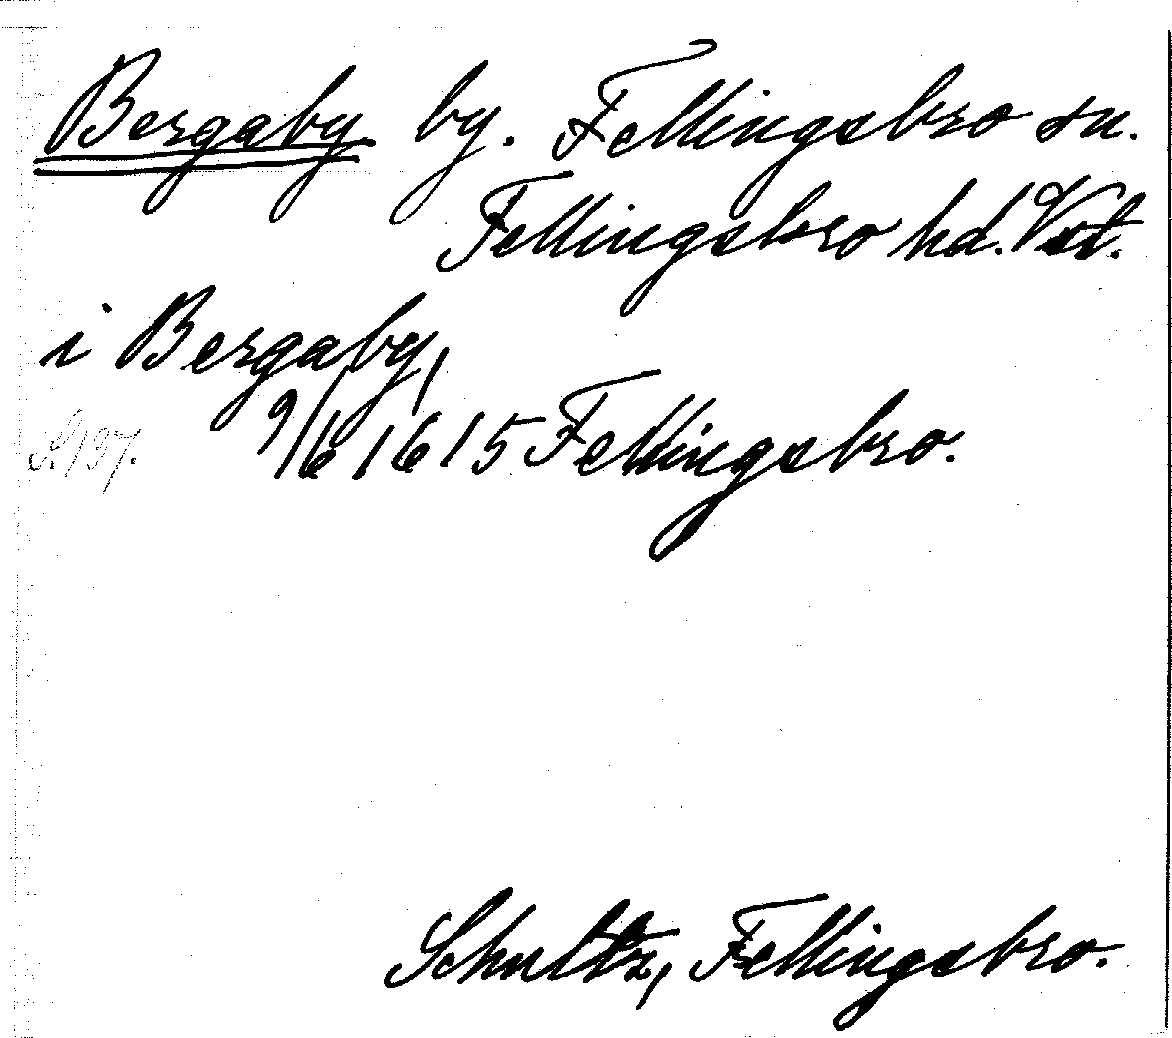 Bergaby. by. Fellingsbro sn.
Fellingsbro hd. Vst.
i Bergaby,
S. 137. 9/6 1615 Fellingsbro.
Schultz, Fellingsbro.